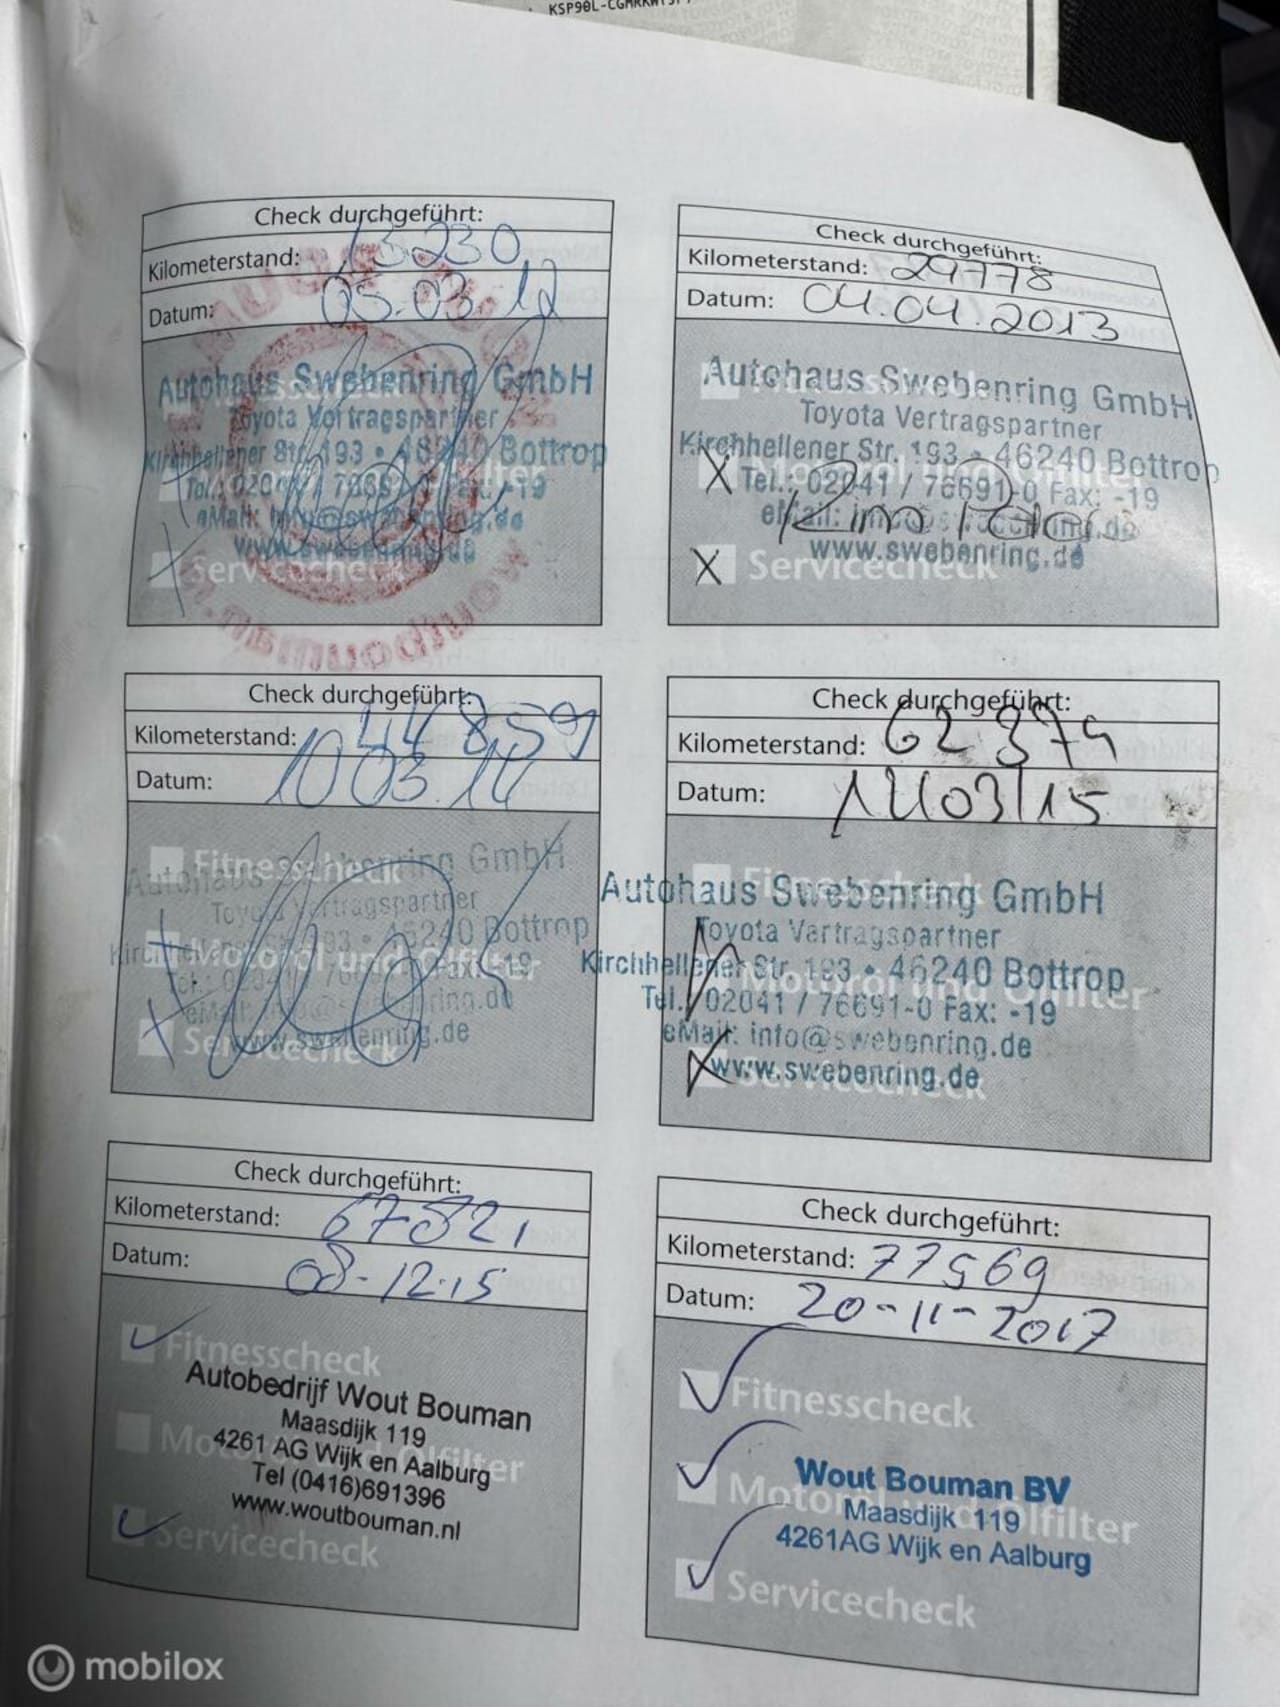 Check durchgeführt:
Kilometerstand: 13230
Datum: 05.03.12
Autohaus Swebenring GmbH
Toyota Vertragspartner
Kirchhellener Str. 193 • 46240 Bottrop
Servicecheck
Check durchgeführt:
Kilometerstand: 29778
Datum: 04.04.2013
Autohaus Swebenring GmbH
Toyota Vertragspartner
Kirchhellener Str. 193 • 46240 Bottrop
X Tel.: 02041 / 76691-0 Fax: -19
www.swebenring.de
X Servicecheck
Check durchgeführt:
Kilometerstand: 44859
Datum: 10 03.14
Fitnesscheck
Autohaus Swebenring GmbH
Toyota Vertragspartner
46240 Bottrop
Motoröl und Ölfilter
www.swebenring.de
Servicecheck
Check durchgeführt:
Kilometerstand: 62374
Datum: 03/15
Fitnesscheck
Autohaus Swebenring GmbH
Toyota Vertragspartner
Kirchhellener Str. 193 • 46240 Bottrop
Motoröl und Ölfilter
Tel.: 02041 / 76691-0 Fax: -19
eMail: info@swebenring.de
www.swebenring.de
Servicecheck
Check durchgeführt:
Kilometerstand: 67821
Datum: 08-12-15
Fitnesscheck
Autobedrijf Wout Bouman
Maasdijk 119
4261 AG Wijk en Aalburg
Motoröl und Ölfilter
Tel (0416)691396
www.woutbouman.nl
Servicecheck
Check durchgeführt:
Kilometerstand: 77569
Datum: 20-11-2017
Fitnesscheck
Wout Bouman BV
Motoröl und Ölfilter
Maasdijk 119
4261AG Wijk en Aalburg
Servicecheck
mobilox